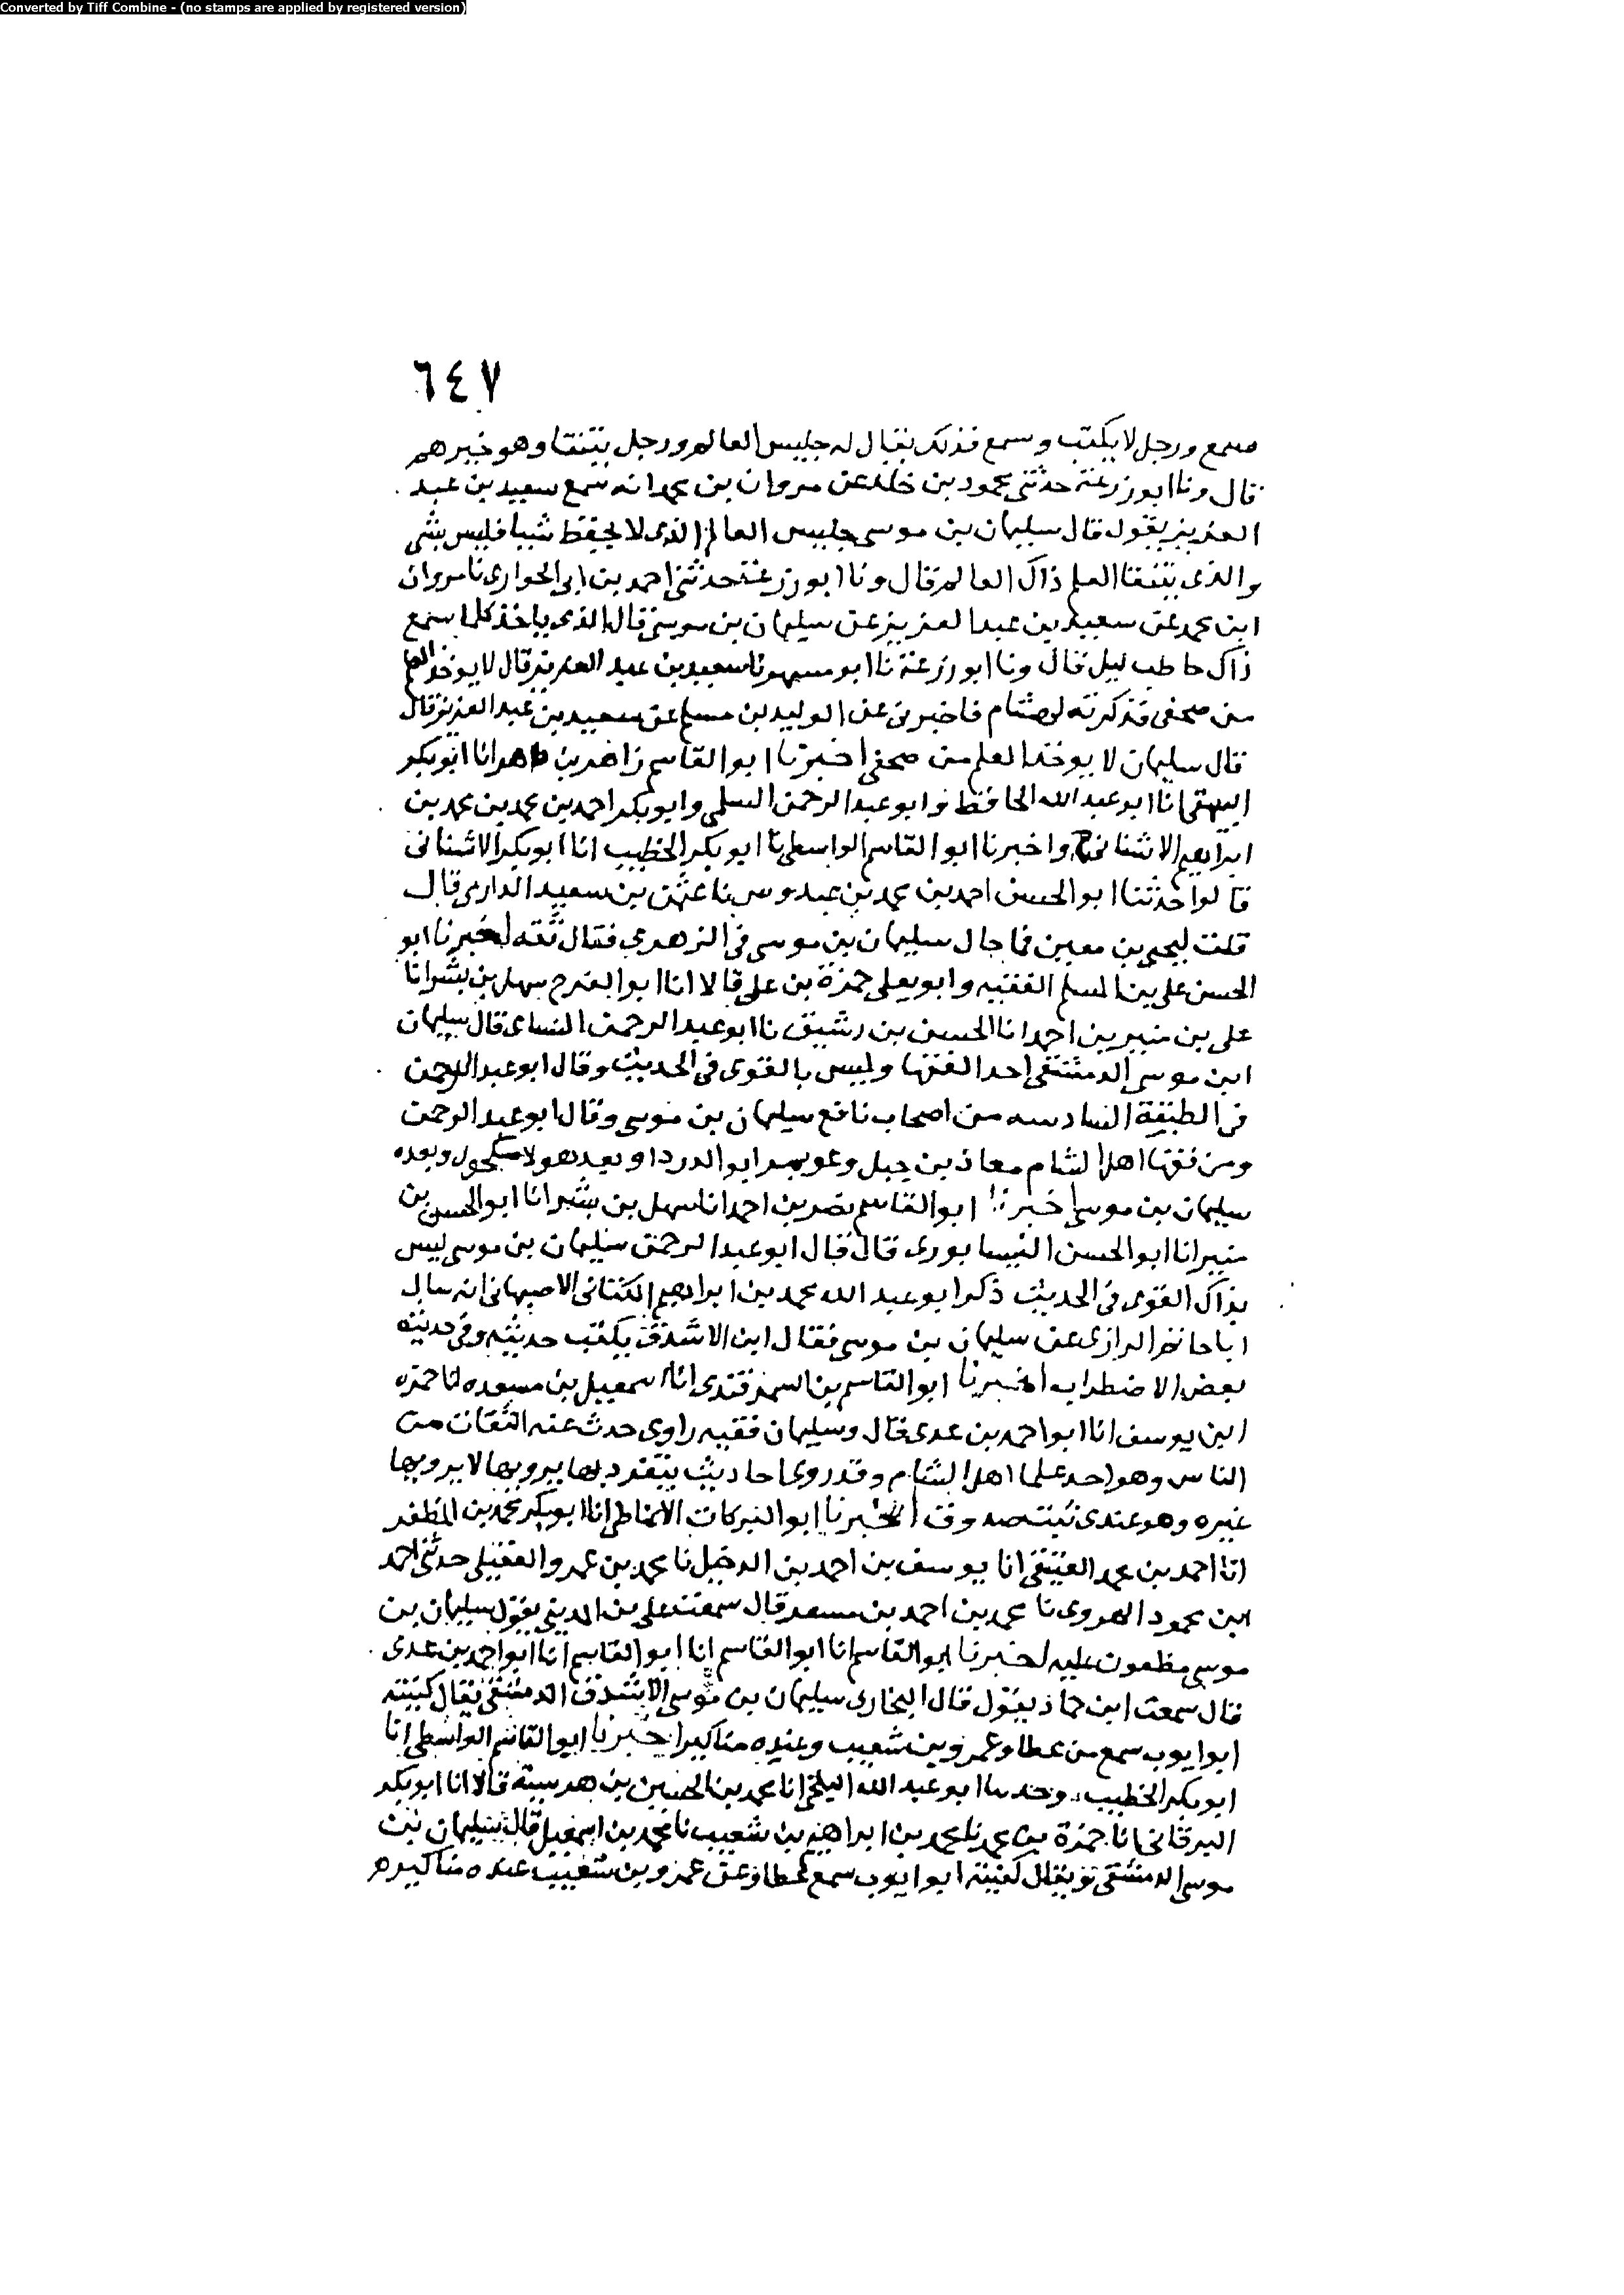 Converted by Tiff Combine - (no stamps are applied by registered version)
٦٤٧
مسمع ورجل لا يكتب وسمع فذلك يقال له جليس العالم ورجل يتنقا وهو خيرهم
قال ونا ابو زرعة حدثني محمود بن خلد عن مروان بن محمد انه سمع سعيد بن عبد
العزيز يقول قال سليمان بن موسى جليس العالم الذى لا يحفظ شيا فليس بشى
والذى يتنقا العلم ذاك العالم قال ونا ابو زرعة حدثني احمد بن ابى الحوارى نا مروان
ابن محمد عن سعيد بن عبد العزيز عن سليمان بن موسى قال الذى ياخذ كلما سمع
ذاك حاطب ليل قال ونا ابو زرعة نا ابو مسهر نا سعيد بن عبد العزيز قال لا يوخذ العلم
من صحفى فذكرته لهشام فاخبرنى عن الوليد بن مسلم عن سعيد بن عبد العزيز قال
قال سليمان لا يوخذ العلم من صحفى اخبرنا ابو القاسم زاهر بن طاهر انا ابو بكر
البيهقى انا ابو عبد الله الحافظ وابو عبد الرحمن السلمى وابو بكر احمد بن محمد بن
ابراهيم الاشنانى ح واخبرنا ابو القاسم الواسطى نا ابو بكر الخطيب انا ابو بكر الاشنانى
قالوا حدثنا ابو الحسن احمد بن محمد بن عبدوس نا عثمن بن سعيد الدارمى قال
قلت ليحيى بن معين فما حال سليمان بن موسى فى الزهرى فقال ثقه اخبرنا ابو
الحسن على بن المسلم الفقيه وابو يعلى حمزة بن على قالا انا ابو الفرج سهل بن بشر انا
على بن منير بن احمد انا الحسن بن رشيق نا ابو عبد الرحمن النساى قال سليمان
ابن موسى الدمشقى احد الفقها وليس بالقوى فى الحديث وقال ابو عبد الرحمن
فى الطبقة السادسه من اصحاب نافع سليمان بن موسى وقال ابو عبد الرحمن
ومن فقها اهل الشام معاذ بن جبل وعويمر ابو الدردا وبعد هولا مكحول وبعده
سليمان بن موسى اخبرنا ابو القاسم نصر بن احمد انا سهل بن بشر انا ابو الحسن بن
منير انا ابو الحسن النيسابورى قال قال ابو عبد الرحمن سليمان بن موسى ليس
بذاك القوى فى الحديث ذكر ابو عبد الله محمد بن ابراهيم الكنانى الاصبهانى انه سال
ابا حاتم الرازى عن سليمان بن موسى فقال ابن الاشدق يكتب حديثه وفى حديثه
بعض الاضطراب اخبرنا ابو القاسم بن السمرقندى انا اسمعيل بن مسعده انا حمزه
ابن يوسف انا ابو احمد بن عدى قال وسليمان فقيه راوى حدث عنه الثقات من
الناس وهو احد علما اهل الشام وقد روى احاديث يتفرد بها يرويها لا يرويها
غيره وهو عندى ثبت صدوق اخبرنا ابو البركات الانماطى انا ابو بكر محمد بن المظفر
انا احمد بن محمد العتيقى انا يوسف بن احمد بن الدخيل نا محمد بن عمرو العقيلى حدثنى احمد
ابن محمود الهروى نا محمد بن احمد بن مسعد قال سمعت على بن المدينى يقول سليمان بن
موسى مطعون عليه اخبرنا ابو القاسم انا ابو القاسم انا ابو القاسم انا ابو احمد بن عدى
قال سمعت ابن حماد يقول قال البخارى سليمان بن موسى الاشدق الدمشقى يقال كنيته
ابو ايوب سمع من عطا وعمرو بن شعيب وعنده مناكير اخبرنا ابو القاسم الواسطى انا
ابو بكر الخطيب وحدثنا ابو عبد الله البلخى انا محمد بن الحسين بن هريسة قالا انا ابو بكر
البرقانى انا حمزة بن محمد نا محمد بن ابراهيم بن شعيب نا محمد بن اسمعيل قال سليمان بن
موسى الدمشقى يقال كنيته ابو ايوب سمع عطا وعن عمرو بن شعيب عنده مناكير ه